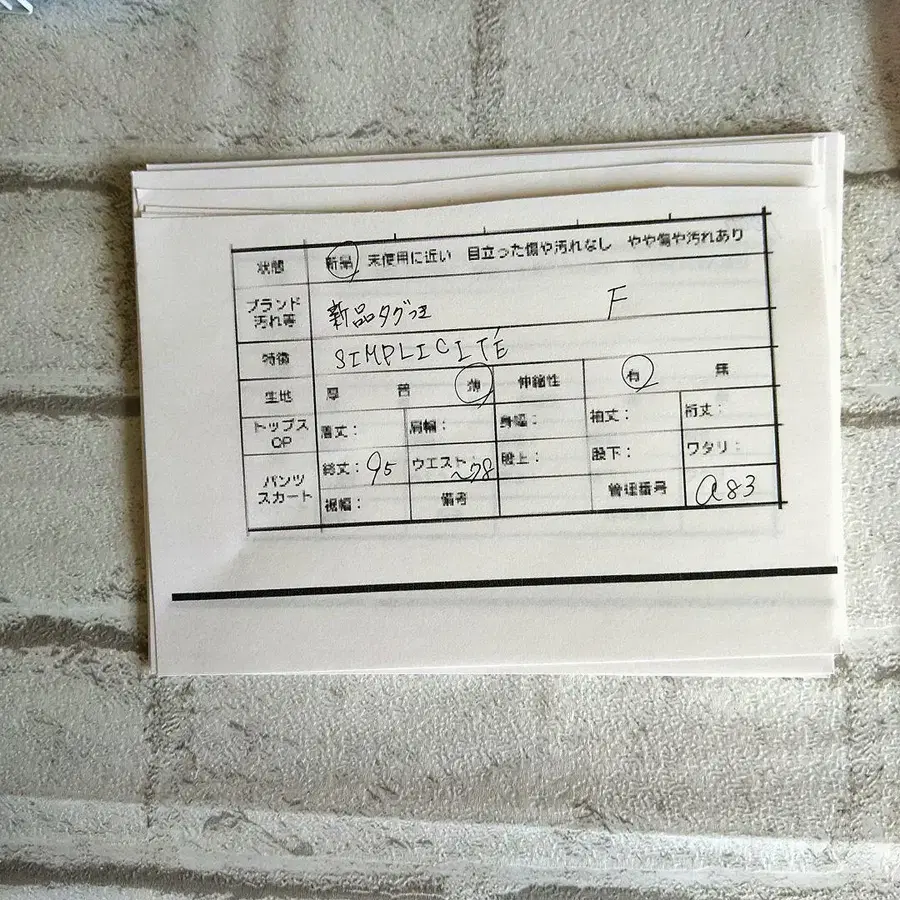 状態 新品 未使用に近い 目立った傷や汚れなし やや傷や汚れあり
ブランド 汚れ等 新品タグつき F
特徴 SIMPLICITÉ
生地 厚 普 薄 伸縮性 有 無
トップス OP 着丈: 肩幅: 身幅: 袖丈: 裄丈:
パンツ スカート 総丈:95 ウエスト:~78 股上: 股下: ワタリ:
裾幅: 備考 管理番号 a83